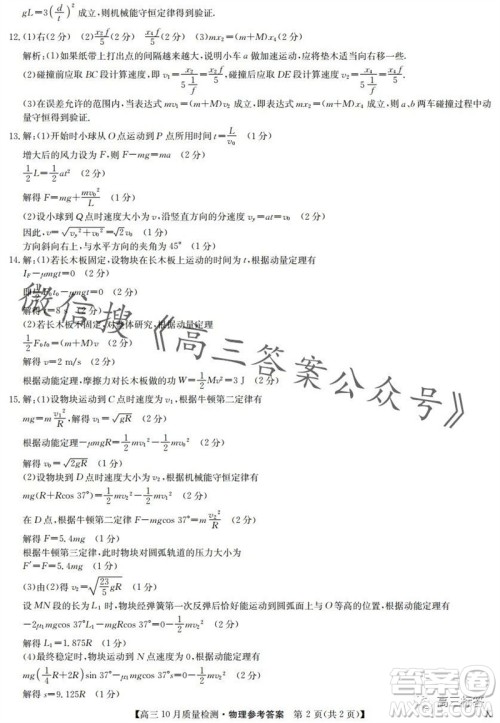 gL=3(d/t)² 成立，则机械能守恒定律得到验证.
12.(1)右(2分) (2) x₂f/5 (2分) x₄f/5 (2分)
解析：(1)如果纸带上打出点的间隔越来越大，说明小车a做加速运动，应将垫木适当向右移一些.
(2)碰撞前应取BC段计算速度，即v₁=x₂/(5·1/f)=x₂f/5，碰撞后应取DE段计算速度v₂=x₄/(5·1/f)=x₄f/5.
(3)在误差允许的范围内，当表达式mv₁=(m+M)v₂，即表达式mx₂=(m+M)x₄成立，则a、b两车碰撞过程中动
量守恒得到验证.
13.解：(1)开始时小球从O点运动到P点所用时间t=L/v₀ (1分)
增大后的风力设为F，则F-mg=ma (2分)
½L=½at² (2分)
解得F=mg+mv₀²/L (1分)
(2)设小球到Q点时速度大小为v，沿竖直方向的分速度 v_y=at=v₀ (2分)
因此，v=√(v_y²+v₀²)=√2v₀ (1分)
方向斜向右上，与水平方向的夹角为45° (1分)
14.解：(1)若长木板固定，设物块在长木板上运动的时间为t，根据动量定理有
I_F-μmgt=0 (2分)
t₀-μmgt=0 (2分)
(1分)
(2)若长木板不固定，对整体研究，根据动量定理
½F₀t₀=2mv (2分)
解得v=2 m/s (1分)
根据动能定理，摩擦力对长木板做的功W=½Mv²=3 J (2分)
15.解：(1)设物块运动到C点时速度为v₁，根据牛顿第二定律有
mg=m v₁²/R，解得v₁=√(gR) (2分)
根据动能定理-μmgR=½mv₁²-½mv₀² (2分)
解得v₀=√(2gR) (1分)
(2)设物块运动到D点时的速度为v₂，根据机械能守恒定律有
mg(R+Rcos 37°)=½mv₂²-½mv₁² (2分)
在D点，根据牛顿第二定律F-mgcos 37°=m v₂²/R (2分)
解得F=5.4mg (1分)
根据牛顿第三定律，此时物块对圆弧轨道的压力大小为
F'=F=5.4mg (1分)
(3)由(2)得v₂=√(23/5 gR)
设MN段的长为L₁时，物块经弹簧反弹后刚好能运动到圆弧面上与O等高的位置，根据动能定理有
-2μmgL₁-mgRcos 37°=0-½mv₂² (1分)
解得L₁=1.875R (1分)
(4)最终稳定时，物块运动到M点速度刚好为零，根据动能定理有
mg(¼R+2R)-μmgs=0-½mv₀² (2分)
解得s=9.125R (1分)
【高三10月质量检测·物理参考答案 第2页(共2页)】
微信搜《高三答案公众号》